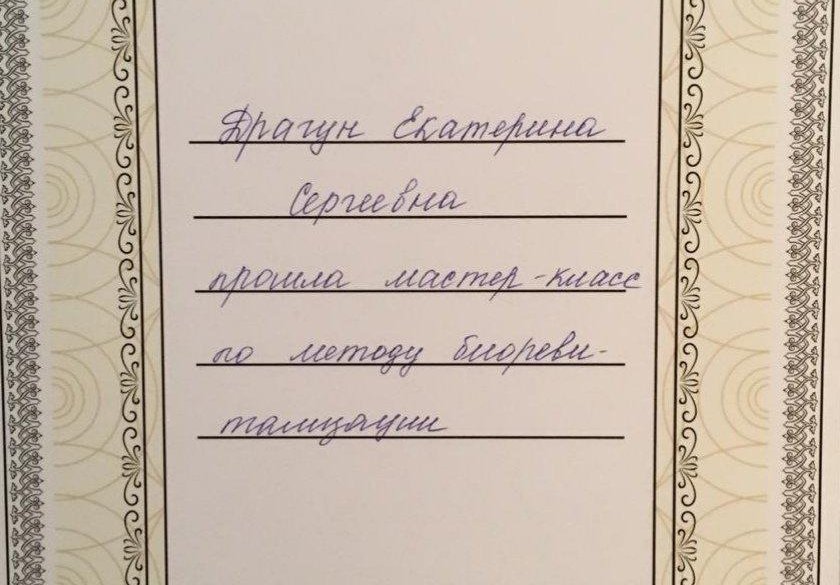 Драгун Екатерина
Сергеевна
прошла мастер-класс
по методу биореви-
тализации